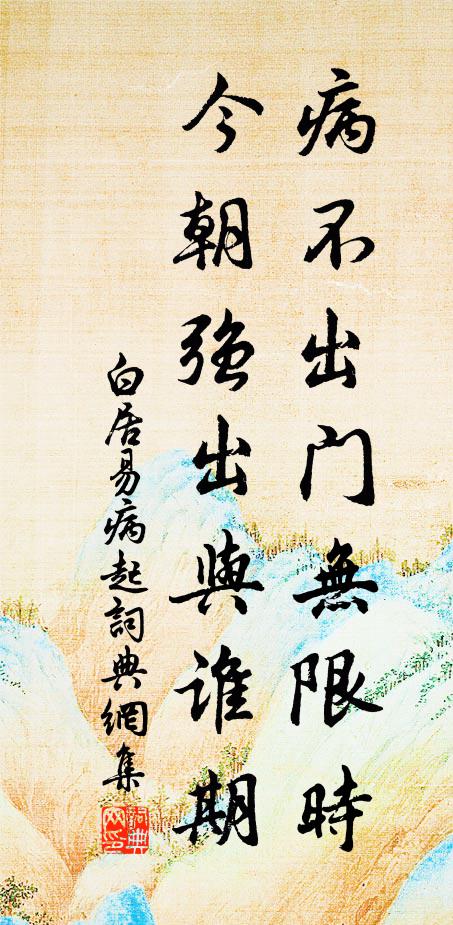 病不出门無限時
今朝强出與誰期
白居易病起詞典網集
詞典网印